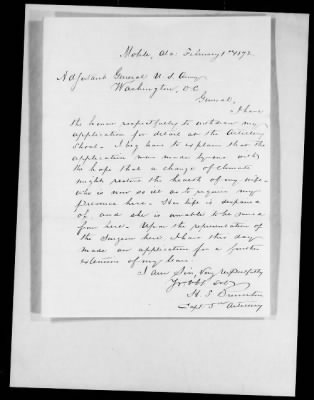 Mobile, Ala. February 1st 1892.
Adjutant General U. S. Army
Washington, D.C.
General,
I have
the honor respectfully to withdraw my
application for detail at the Artillery
School. I beg leave to explain that the
application was made by me with
the hope that a change of climate
might restore the health of my wife
who is now so ill as to require my
presence here. Her life is despaired
of, and she is unable to be moved
from here. Upon the representation of
the Surgeon here I have this day
made an application for a further
extension of my leave.
I am Sir, Very respectfully
Yr obt svt
Capt 5th Artillery